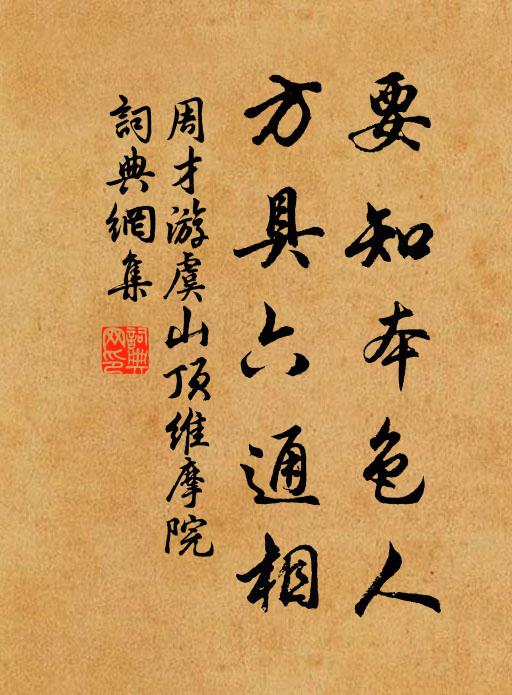 要知本色人
方具六通相
周才游虞山顶维摩院
詞典網集
詞典
网印